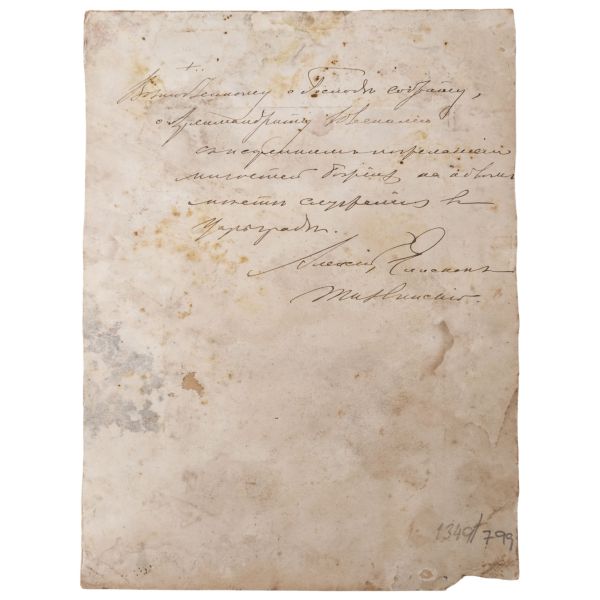 Возлюбленному о Господѣ собрату,
о. Архимандриту
съ искреннимъ пожеланіемъ
милостей Божіихъ на новомъ
мѣстѣ служенія въ
Царьградѣ.
Алексій, Епископъ
1349/799